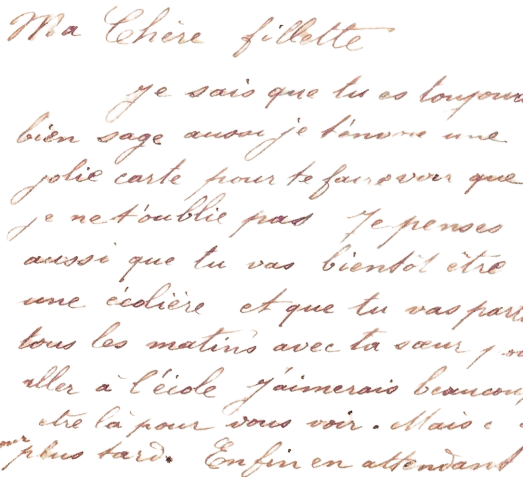 Ma Chère fillette
Je sais que tu es toujours
bien sage aussi je t'envoie une
jolie carte pour te faire voir que
je ne t'oublie pas Je penses
aussi que tu vas bientôt être
une écolière et que tu vas parti
tous les matins avec ta sœur
aller à l'école J'aimerais beaucoup
etre là pour vous voir. Mais c
plus tard. Enfin en attendant